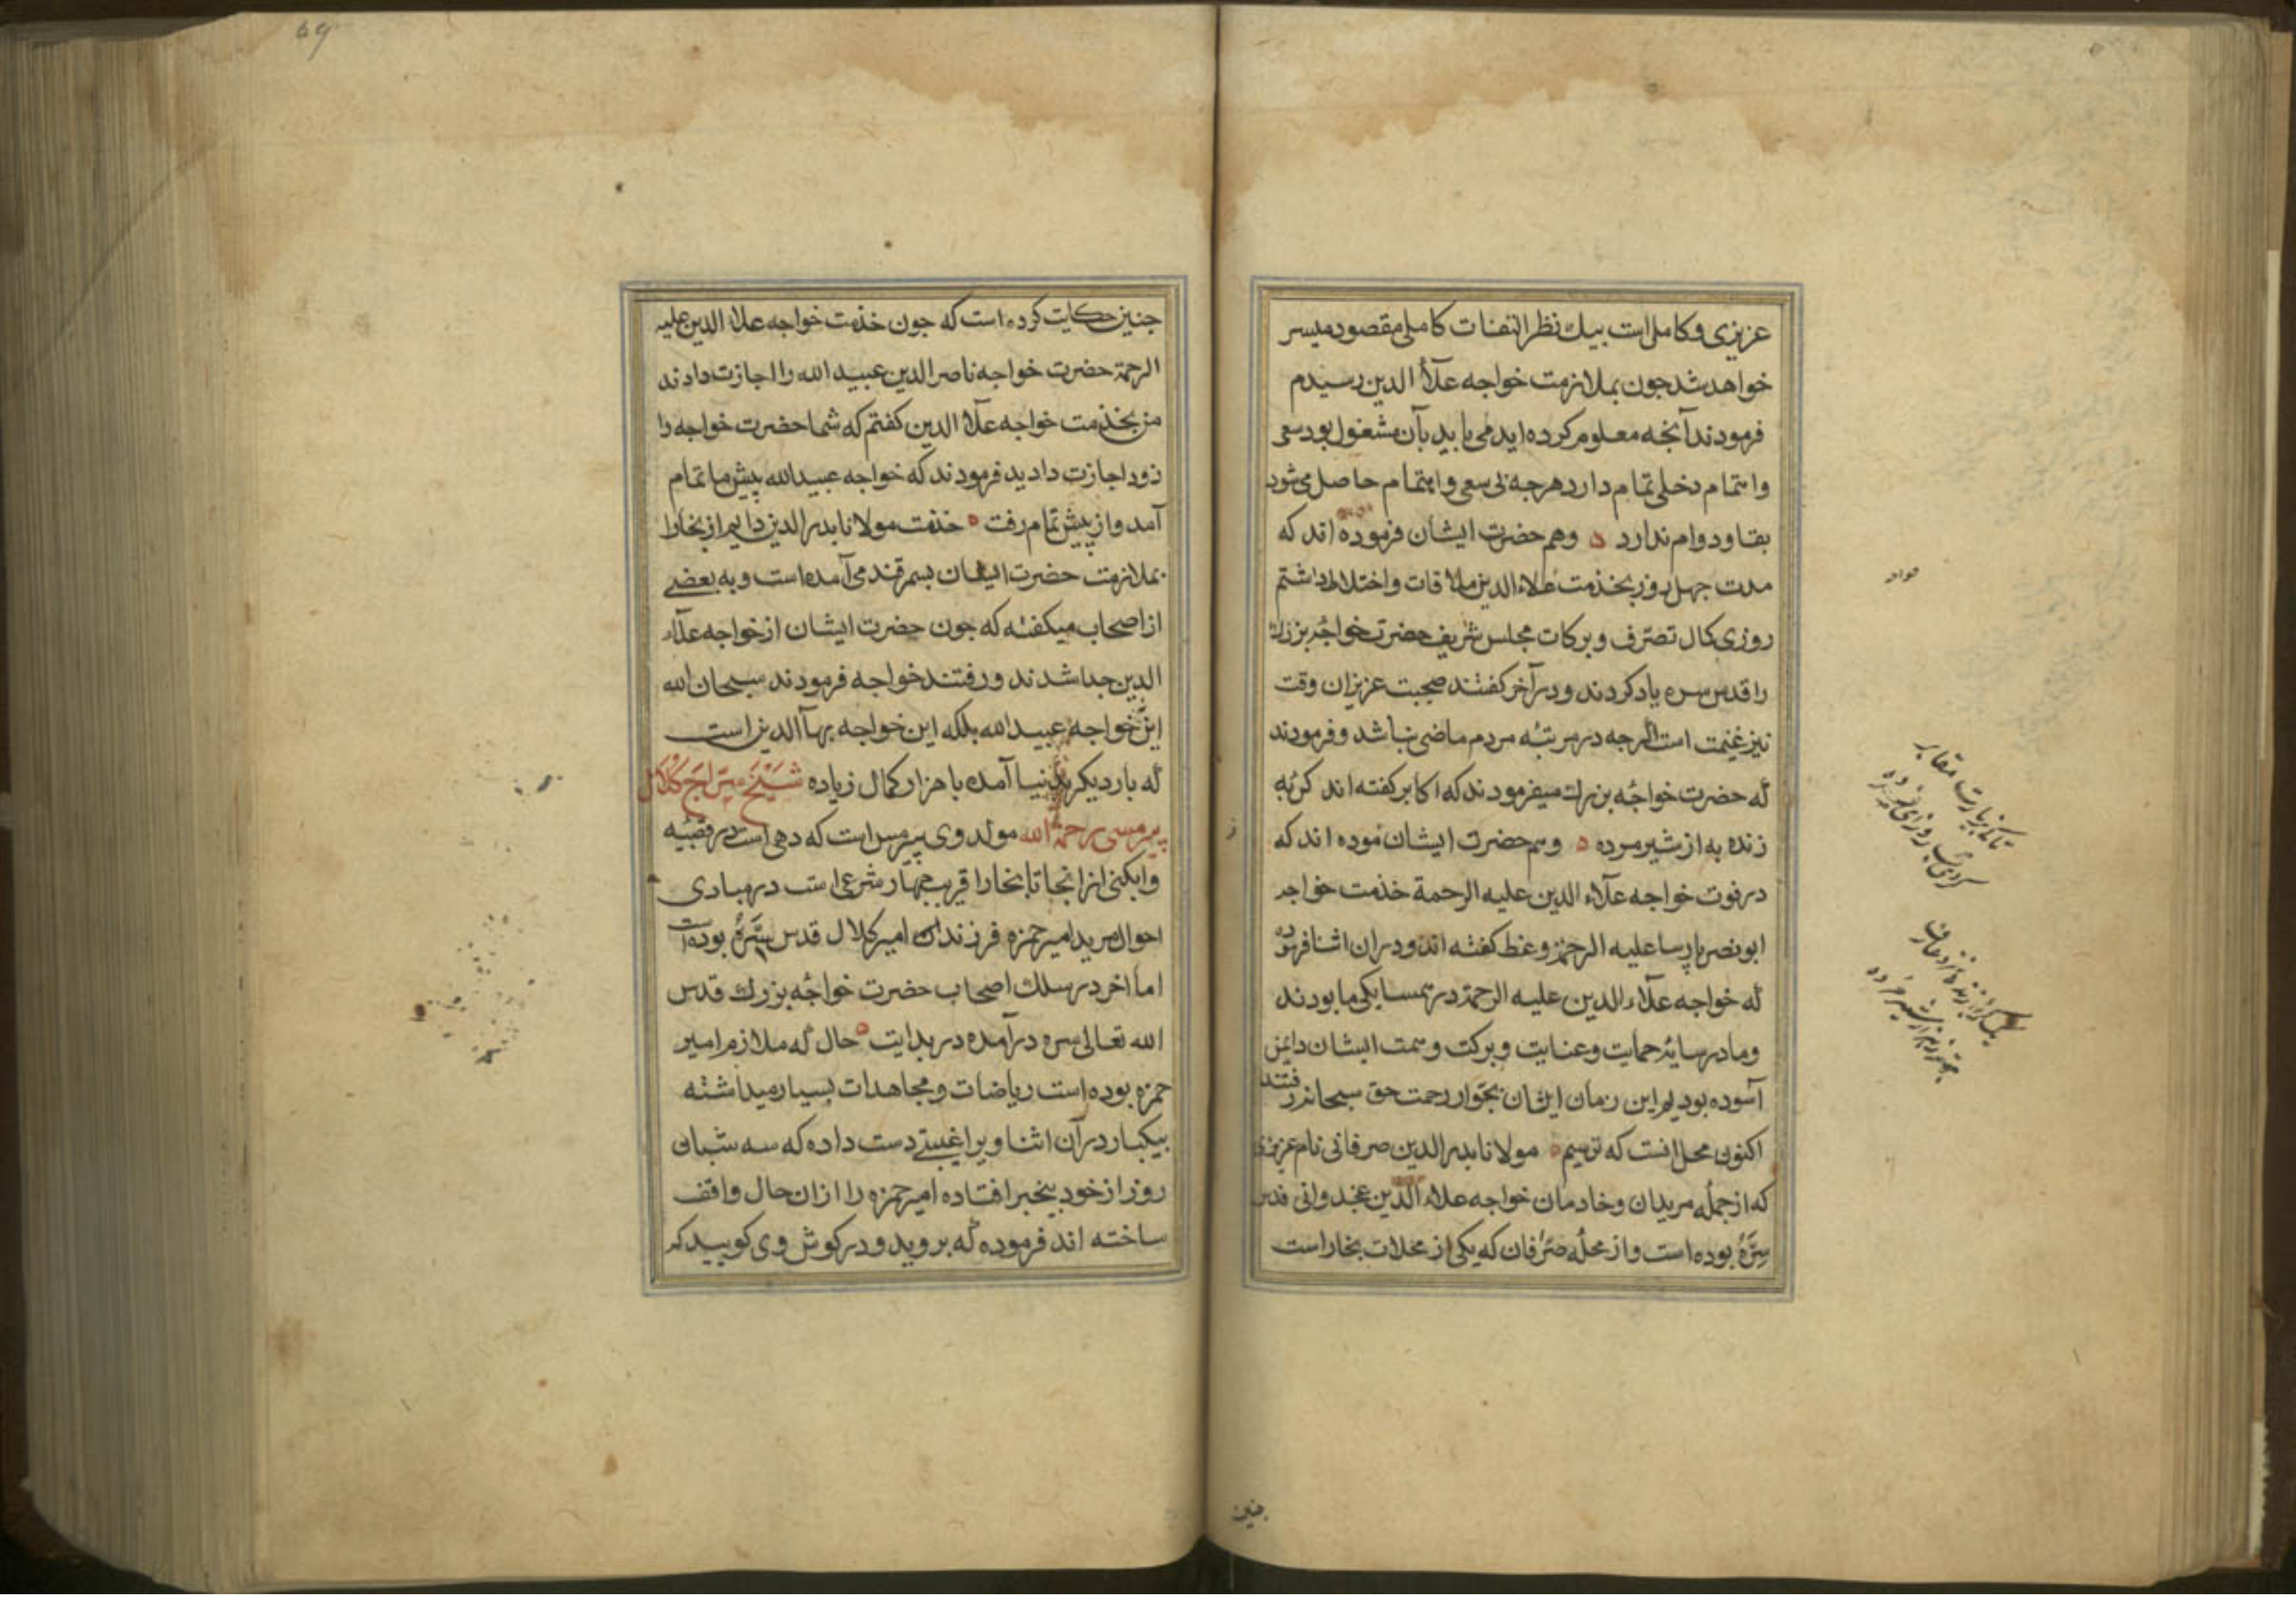 عزیزی و کامل است بیک نظر التفات کاملی مقصود میسر
خواهد شد جون بملازمت خواجه علآء الدین رسیدم
فرمودند آنجه معلوم کرده اید می باید بآن مشغول بود سعی
و اهتمام دخلی تمام دارد هرجه بی سعی و اهتمام حاصل می شود
بقا و دوام ندارد ه وهم حضرت ایشان فرموده اند که
مدت جهل روز بخذمت علاء الدین ملاقات و اختلاط داشتم
روزی کمال تصرّف و برکات مجلس شریف حضرت خواجۀ بزرك
را قدس سره یاد کردند و در آخر گفتند صحبت عزیزان وقت
نیز غنیمت است اکرجه در مرتبۀ مردم ماضی نباشد و فرمودند
که حضرت خواجۀ بزرك میفرمودند که اکابر کفته اند کربۀ
زنده به از شیر مرده ه وهم حضرت ایشان فموده اند که
در فوت خواجه علآء الدین علیه الرحمة خذمت خواجه
ابو نصر پارسا علیه الرحمة وعظ کفته اند و در ان اثنا فرموده
که خواجه علآء الدین علیه الرحمة در همسایکی ما بودند
و ما در سایۀ حمایت و عنایت و برکت و همت ایشان دایمن
آسوده بودیم این زمان ایشان بجوار رحمت حق سبحانه رفتند
اکنون محل انست که ترسیم ه مولانا بدر الدین صرفانی نام عزیزی
که از جملۀ مریدان و خادمان خواجه علاء الدین غجدوانی قدس
سِرَّهُ بوده است و از محلۀ صرّافان که یکی از محلات بخاراست
جنین
جنین حکایت کرده است که جون خذمت خواجه علاء الدین علیه
الرحمة حضرت خواجه ناصر الدین عبید الله را اجازت دادند
من بخذمت خواجه علآء الدین کفتم که شما حضرت خواجه را
زود اجازت دادید فرمودند که خواجه عبید الله پیش ما تمام
آمد و از پیش تمام رفت ه خذمت مولانا بدر الدین دایم از بخارا
بملازمت حضرت ایشان بسمرقند می آمده است و به بعضی
از اصحاب میکفته که جون حضرت ایشان از خواجه علآء
الدین جدا شدند و رفتند خواجه فرمودند سبحان الله
این خواجه عبید الله بلکه این خواجه بهآ الدین است
که بار دیکر بدنیا آمده با هزار کمال زیاده شَیْخ سِرَاج کُلال
پیرمسی رحمة الله مولد وی پیرمس است که دهی است در قصبۀ
وابکنی از انجا تا بخارا قریب جهار شرعی است در مبادی
احوال مرید امیر حمزه فرزندان امیر کلال قدس سِرَّهُ بوده است
اما اخر در سلك اصحاب حضرت خواجۀ بزرك قدس
الله تعالی سره در آمده در بدایت حال که ملازم امیر
حمزه بوده است ریاضات و مجاهدات بسیار میداشته
بیکبار در آن اثنا ویرا غیبتی دست داده که سه شبانی
روز از خود بیخبر افتاده امیر حمزه را ازان حال واقف
ساخته اند فرموده که بروید و در کوش وی کویید که